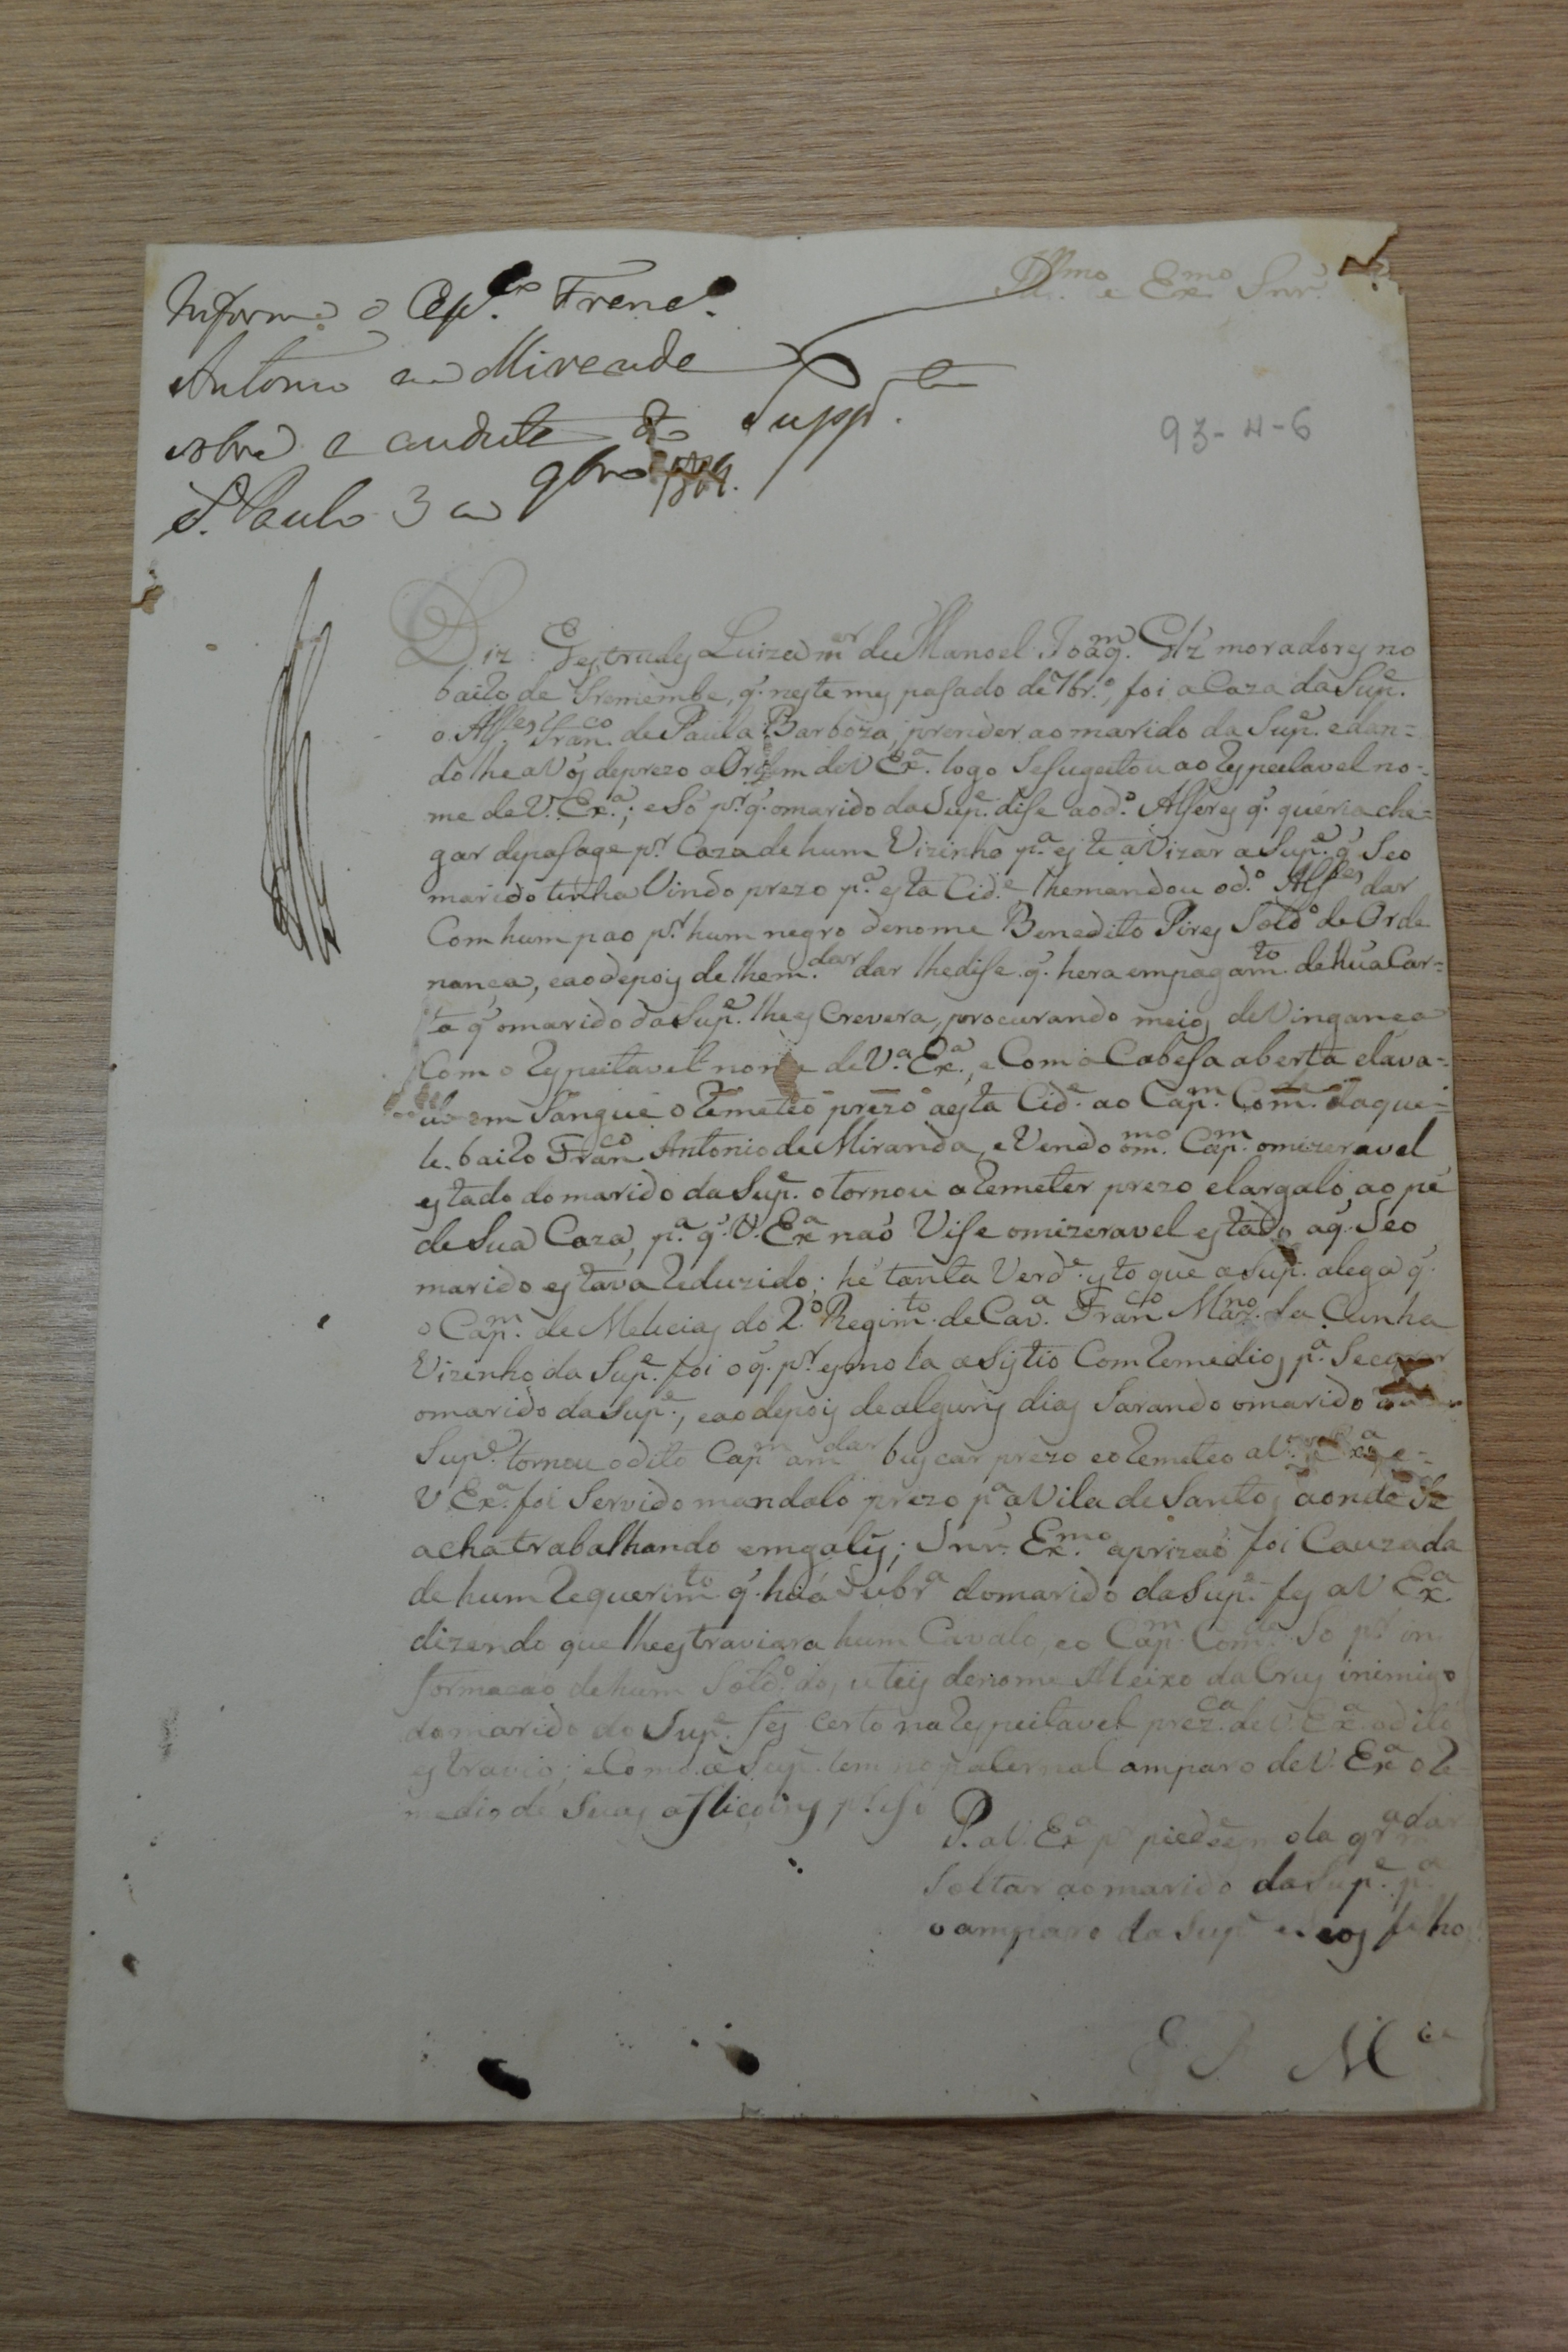 Ill.mo e Ex.mo Snr
Informe o Cap.m Franc.o
Antonio de Miranda
sobre a conducta do Supp.te
S. Paulo 3 de 9bro
93-4-6
Diz Gertrudes Luiza m.er de Manoel Joaq.m Glz moradores no
bairo de Tremembe, q. neste mes pasado de 7br.o, foi a Caza da Sup.e
o Alf.es Fran.co de Paula Barboza, prender ao marido da Sup.e e dan=
dolhe a Vós de prezo a Ordem de V Ex.a logo Sesugeitou ao Respeitavel no=
me de V. Ex.a; e Só p.r q. omarido da Sup.e dise aod.o Alferes q. queria che=
gar depasage p.r Caza de hum Vizinho p.a este aVizar a Sup.e q Seo
marido tinha Vindo prezo p.a esta Cid.e lhemandou od.o Alf.es dar
Com hum pao p.r hum negro denome Benedito Pires Sold.o de Orde
nança, eaodepois de lhem.dar dar lhedise q. hera empagam.to de hua Car=
ta q omarido da Sup.e lhe es Crevera, procurando meios deVingança
Com o Respeitavel nome de V.a Ex.a, e Com a Cabesa aberta elava=
do em Sangue o Remeteo prezo aesta Cid.e ao Cap.m Com.e daque=
le bairo Fran.co Antonio de Miranda, e Vendo om.mo Cap.m omizeravel
estado domarido da Sup.e otornou a Remeter prezo elargalo, ao pé
de Sua Caza, p.a q. V. Ex.a naó Vise omizeravel estado aq. Seo
marido estava Reduzido; hé tanta Verd.e isto que a Sup.e alega q.
o Cap.m de Melicias do 2.o Regim.to de Cav.a Fran.co Ma.no da Cunha
Vizinho da Sup.e foi o q. p.r esmola asistio Com Remedios p.a Securar
omarido da Sup.e, eaodepois dealguns dias Sarando omarido da
Sup.e tornou odito Cap.m am.dar buscar prezo eoRemeteo a V. Ex.a e=
V Ex.a foi Servido mandalo prezo p.a a Vila de Santos aonde Se
acha trabalhando emgalés; Snr. Ex.mo aprizaó foi Cauzada
de hum Requerim.to q. huá Subr.a domarido da Sup.e fes a V Ex.a
dizendo que lhe estraviara hum Cavalo, eo Cap.m Com.e So p.r in
formaçaó dehum Sold.o dos uteis denome Aleixo da Crus inimigo
domarido da Sup.e fes certo na Respeitavel prez.ca de V. Ex.a odito
estravio; eComo a Sup.e tem no paternal amparo de V. Ex.a o Re
medio de Suas aflicoins p.r iso
P. a V. Ex.a p.r pied.e esmola q. m.dar
Soltar aomarido da Sup.e p.a
o amparo da Sup.e e Seos filhos
E. R. M.ce